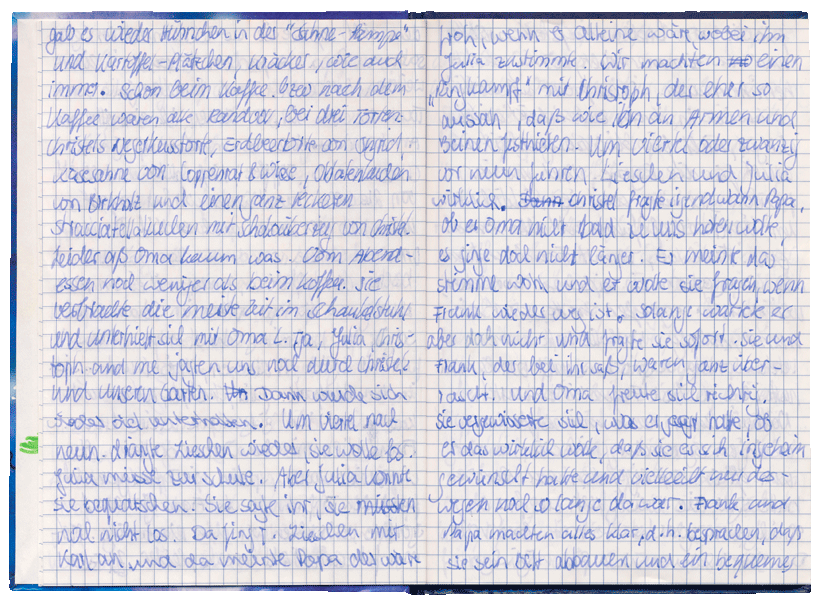 gab es wieder Hühnchen in der "Sahne-Pampe"
und Kartoffel-Plätzchen, Kräcker, wie auch
immer. Schon beim Kaffee bzw nach dem
Kaffee waren alle Randvoll, bei drei Torten:
Christels Negerkusstorte, Erdbeertorte von
Käsesahne von Coppenrat & Wiese, Obstkuchen
von Birkholz und einen ganz leckeren
Stracciatellakuchen mit Schokoüberzug von Christel.
Leider aß Oma kaum was. Vom Abend-
essen noch weniger als beim Kaffee. Sie
verbrachte die meiste Zeit im Schaukelstuhl
und unterhielt sich mit Oma L. Tja, Julia, Chris-
toph and me jagten uns noch durch Christels
und unseren Garten. Dann wurde sich
wieder viel unterhalten. Um viertel nach
neun drängte Lieschen wieder, sie wolle los.
Julia müsse zur Schule. Aber Julia konnte
sie bequatschen. Sie sagte ihr, sie müssen
noch nicht los. Da fing Lieschen mit
Karl an und da meinte Papa der wäre
froh, wenn er alleine wäre, wobei ihm
Julia zustimmte. Wir machten einen
"Ringkampf" mit Christoph, der eher so
aussah, daß wie ihn an Armen und
Beinen festhielten. Um viertel oder zwanzig
vor neun fuhren Lieschen und Julia
wirklich. Christel fragte irgendwann Papa,
ob er Oma nicht bald zu uns holen wolle,
es ginge doch nicht länger. Er meinte das
stimme wohl und er wolle sie fragen, wenn
Frank wieder weg ist. Solange wartete er
aber doch nicht und fragte sie sofort. Sie und
Frank, der bei ihr saß, waren ganz über-
rascht. Und Oma freute sich richtig.
Sie vergewisserte sich, was er gesagt hatte, ob
er das wirklich wolle, daß sie es sich insgeheim
gewünscht hatte und vielleicht nur des-
wegen noch so lange da war. Frank und
Papa machten alles klar, d.h. besprachen, daß
sie sein Bett abbauen und ein bequemes